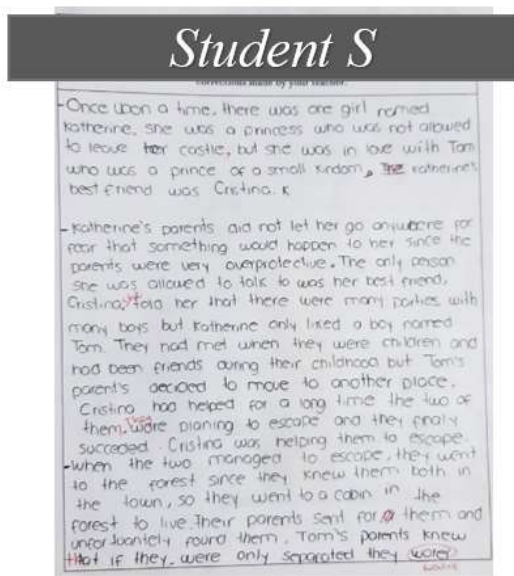 Student S
corrections made by your teacher.
- Once upon a time, there was one girl named
Katherine, she was a princess who was not allowed
to leave her castle, but she was in love with Tom
who was a prince of a small kindom, The Katherine's
best friend was Cristina. K
- Katherine's parents did not let her go anywhere for
fear that something would happen to her since the
parents were very overprotective. The only person
she was allowed to talk to was her best friend,
Cristina, she told her that there were many parties with
many boys but Katherine only liked a boy named
Tom. They had met when they were children and
had been friends during their childhood but Tom's
parent's decided to move to another place.
Cristina had helped for a long time the two of
them. They were planing to escape and they finaly
succeded. Cristina was helping them to escape.
- When the two managed to escape, they went
to the forest since they knew them both in
the town, so they went to a cabin in the
forest to live. Their parents sent for them and
unfortuantely found them. Tom's parents knew
that if they were only separated they